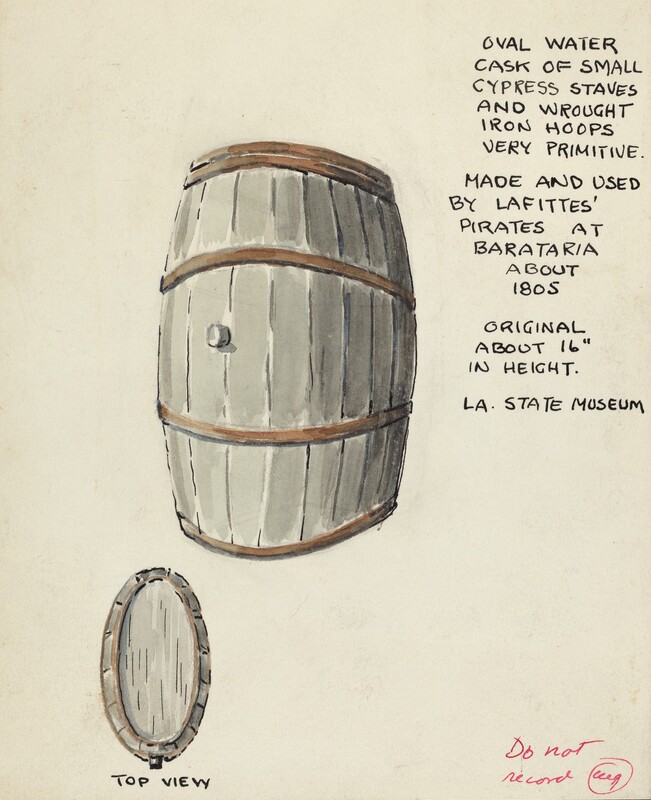 OVAL WATER
CASK OF SMALL
CYPRESS STAVES
AND WROUGHT
IRON HOOPS
VERY PRIMITIVE.
MADE AND USED
BY LAFITTES'
PIRATES AT
BARATARIA
ABOUT
1805
ORIGINAL
ABOUT 16"
IN HEIGHT.
LA. STATE MUSEUM
TOP VIEW
Do not
record